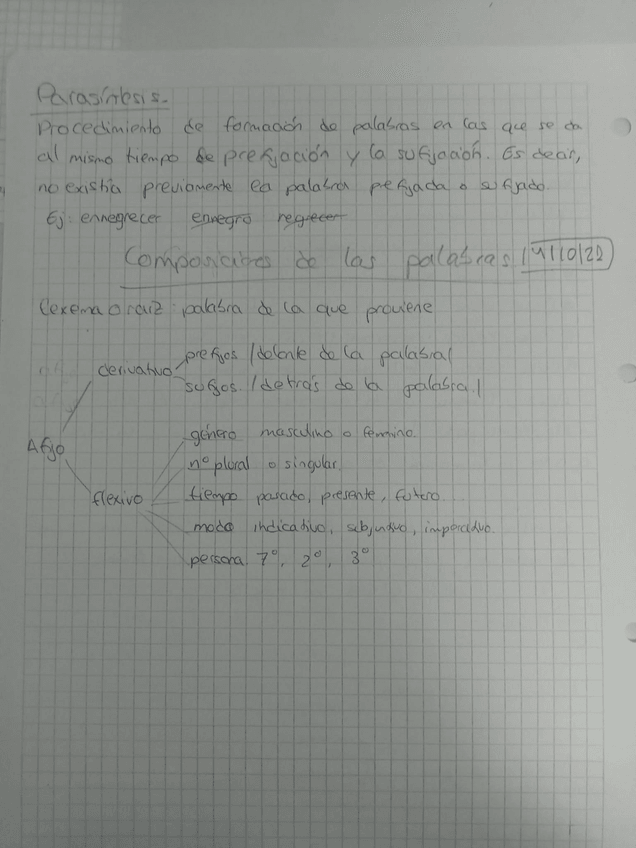 Parasíntesis.-
Procedimiento de formación de palabras en las que se da
al mismo tiempo be prefijación y la sufijación. Es decir,
no existía previamente la palabra prefijada o sufijado.
Ej: ennegrecer ennegro negrecer
Composicion de las palabras 14/10/22
Lexema o raiz: palabra de la que proviene
derivativo prefijos /delante de la palabra/
sufijos. /detrás de la palabra./
Afijo
género masculino o femnino.
nº plural o singular.
flexivo tiempo pasado, presente, futuro...
modo indicativo, subjuntivo, imperativo.
persona. 1º, 2º, 3º